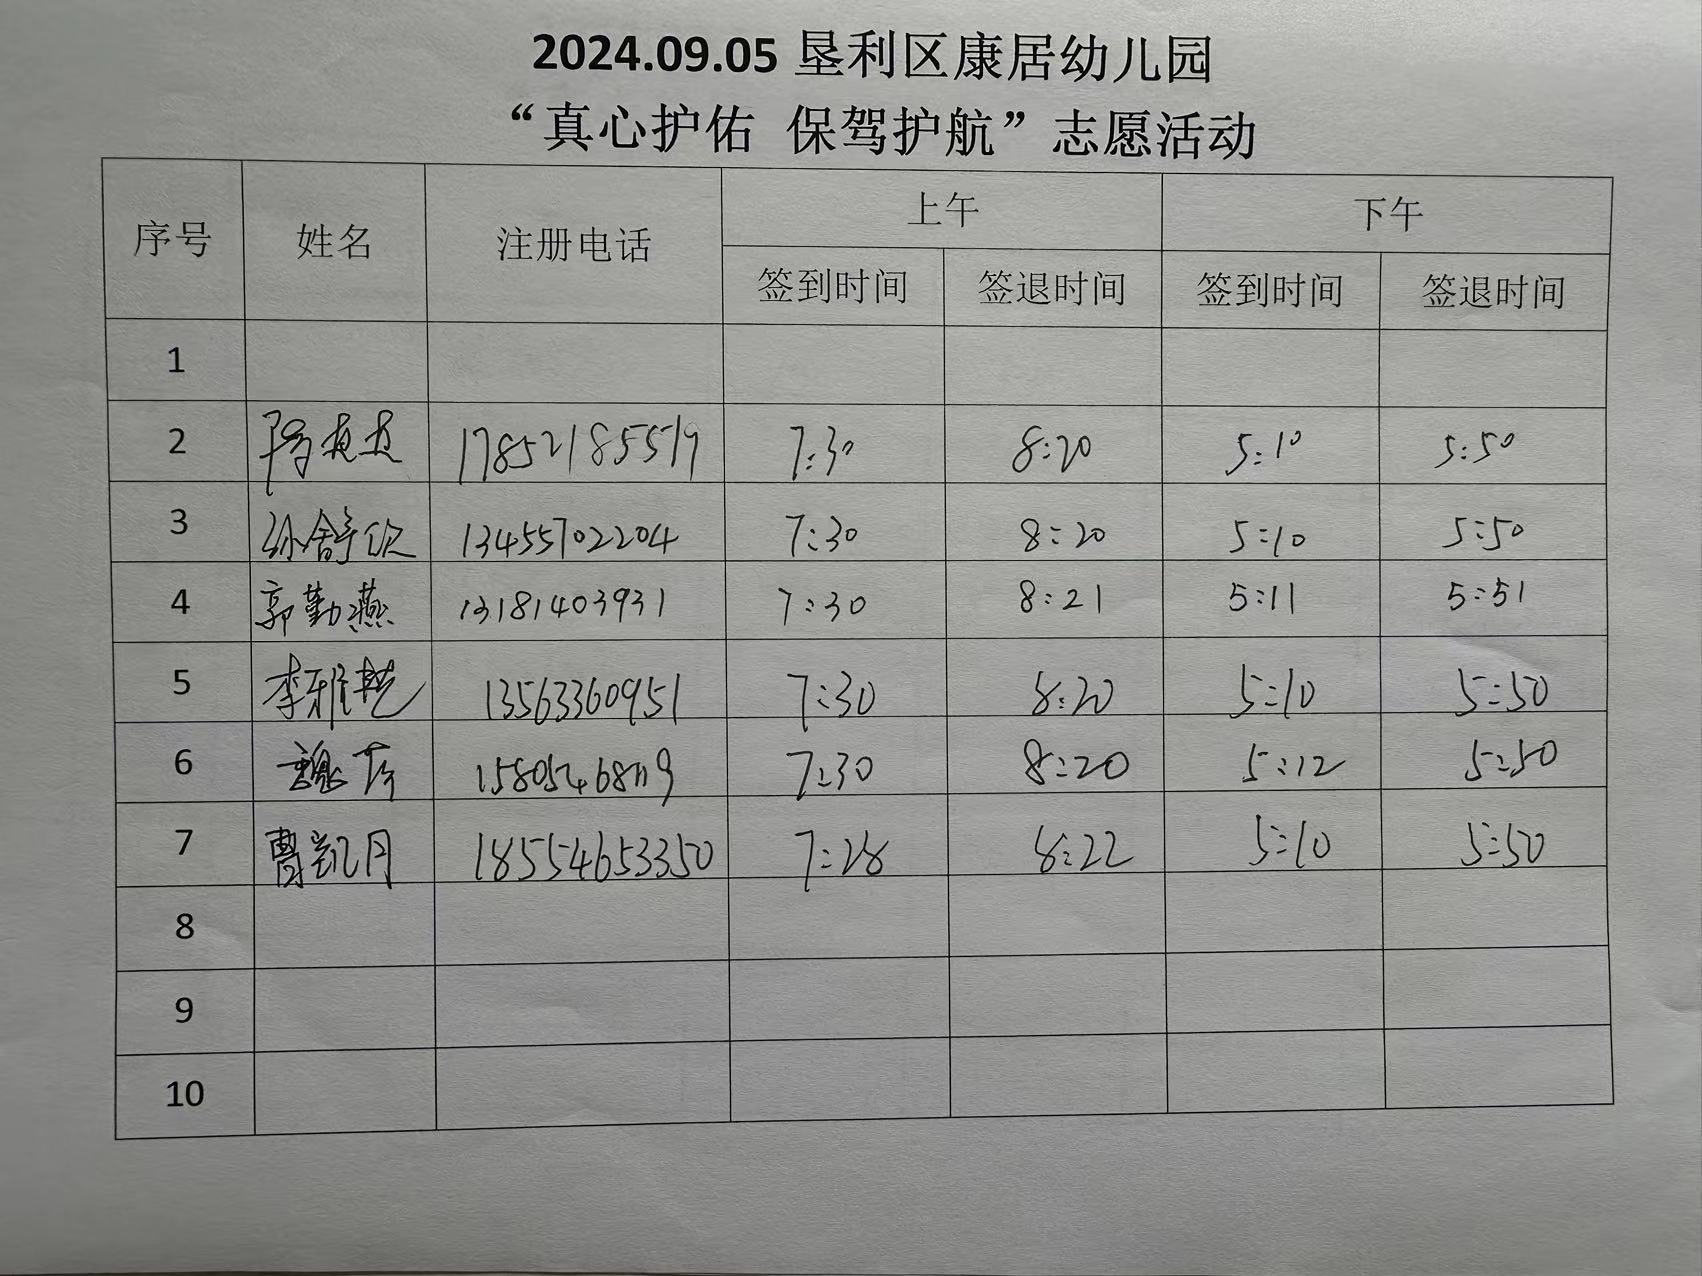 2024.09.05 垦利区康居幼儿园
“真心护佑 保驾护航”志愿活动
序号 姓名 注册电话 上午 下午
签到时间 签退时间 签到时间 签退时间
1
2 17852185519 7:30 8:20 5:10 5:50
3 孙舒欣 13455702204 7:30 8:20 5:10 5:50
4 郭勤燕 13181403931 7:30 8:21 5:11 5:51
5 李雅艳 13563360951 7:30 8:20 5:10 5:50
6 魏芹 7:30 8:20 5:12 5:50
7 曹凯月 18554653350 7:28 8:22 5:10 5:50
8
9
10